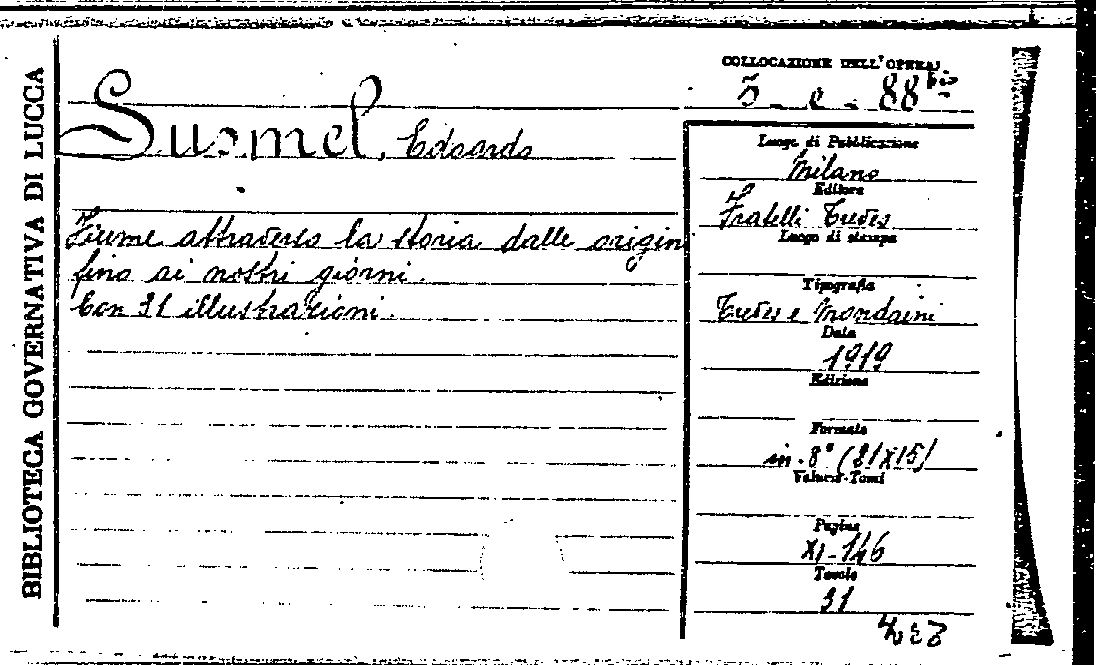 BIBLIOTECA GOVERNATIVA DI LUCCA
COLLOCAZIONE DELL'OPERA:
5 - e - 88 bis
Susmel, Edoardo
Fiume attraverso la storia dalle origin
fino ai nostri giorni.
Con 31 illustrazioni.
Luogo di Pubblicazione
Milano
Editore
Fratelli Treves
Luogo di stampa
Tipografia
Treves e Mondaini
Data
1919
Edizione
Formato
in-8° (21X15)
Volumi-Tomi
Pagine
XI-146
Tavole
31